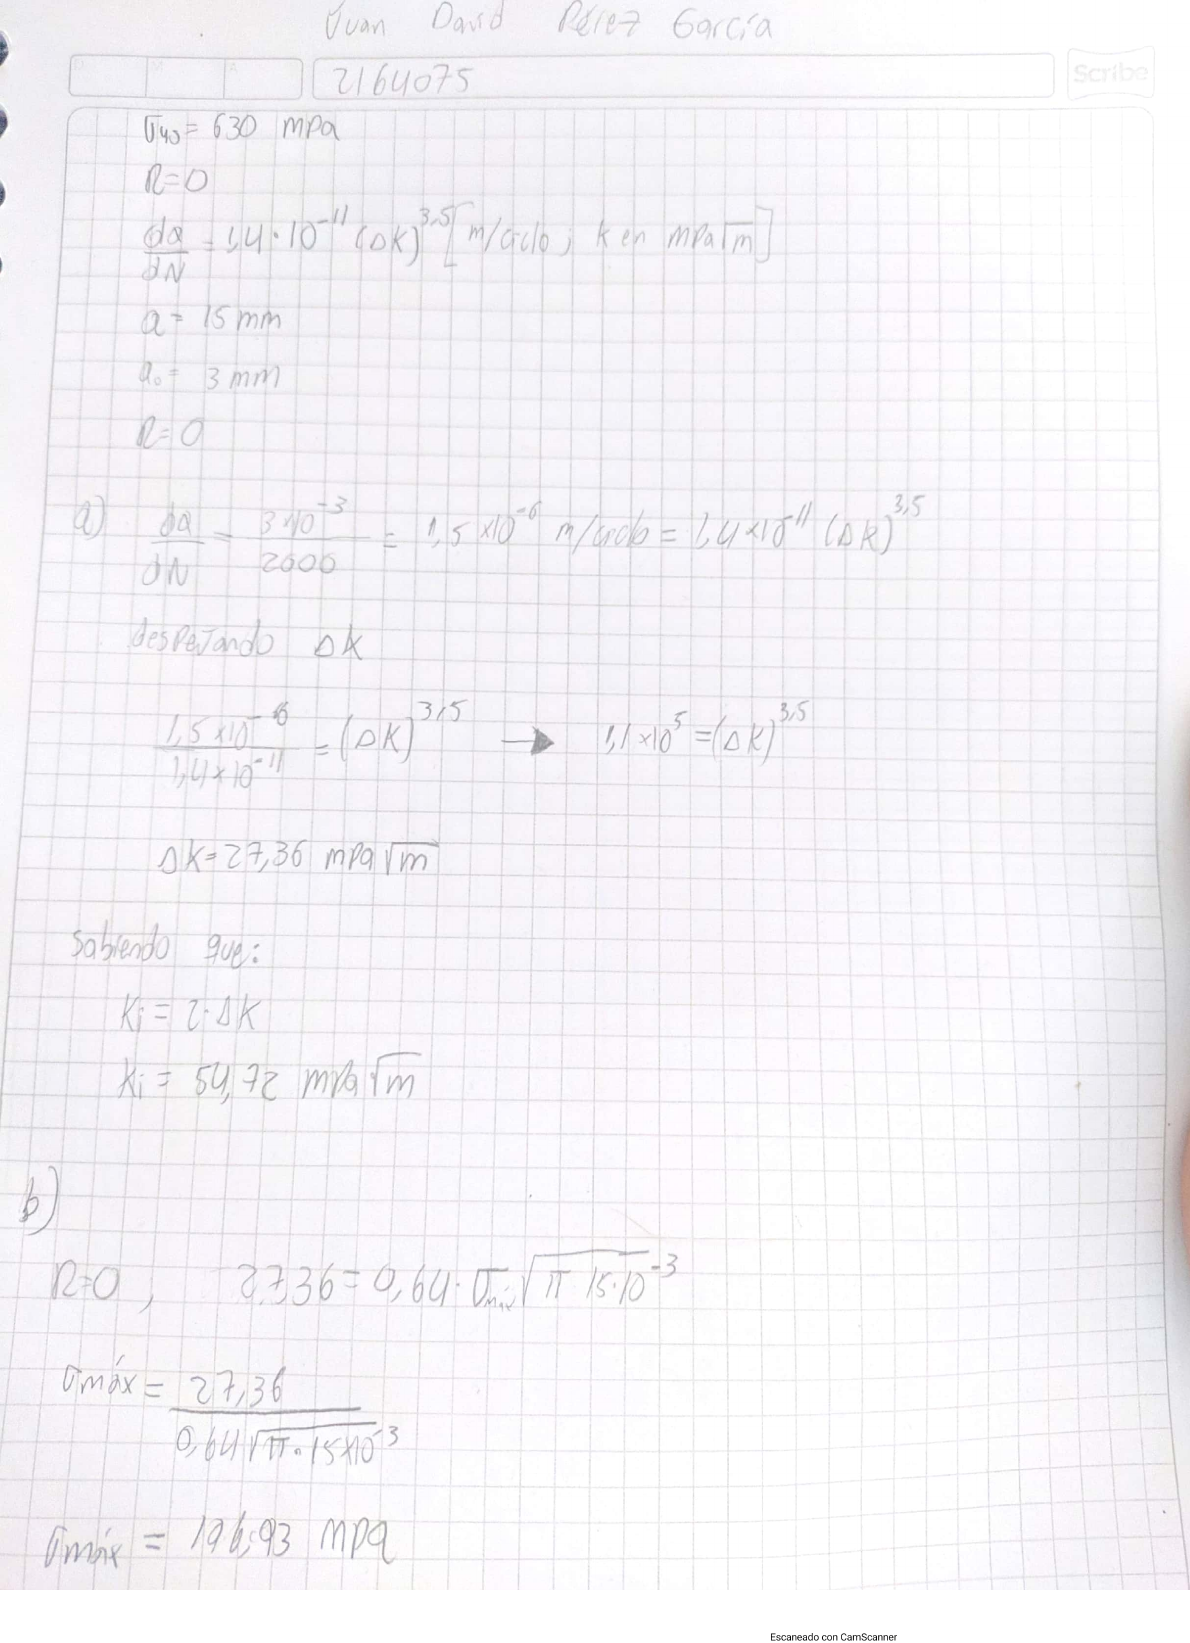 Juan David Pérez García
2164075
Scribe
σ40 = 630 mpa
R=0
da/dN = 1,4·10^-11 (ΔK)^3,5 [m/ciclo; k en mPa√m]
a = 15 mm
a₀ = 3 mm
R=0
a) da/dN = 3x10^-3/2000 = 1,5x10^-6 m/ciclo = 1,4x10^-11 (ΔK)^3,5
despejando ΔK
1,5x10^-6/1,4x10^-11 = (ΔK)^3,5 → 1,1x10^5 = (ΔK)^3,5
ΔK = 27,36 mpa√m
Sabiendo que:
Ki = 2·ΔK
Ki = 54,72 mpa√m
b)
R=0, 27,36 = 0,64·σmáx √π 15·10^-3
σmáx = 27,36/0,64√π·15x10^-3
σmáx = 196,93 mpa
Escaneado con CamScanner